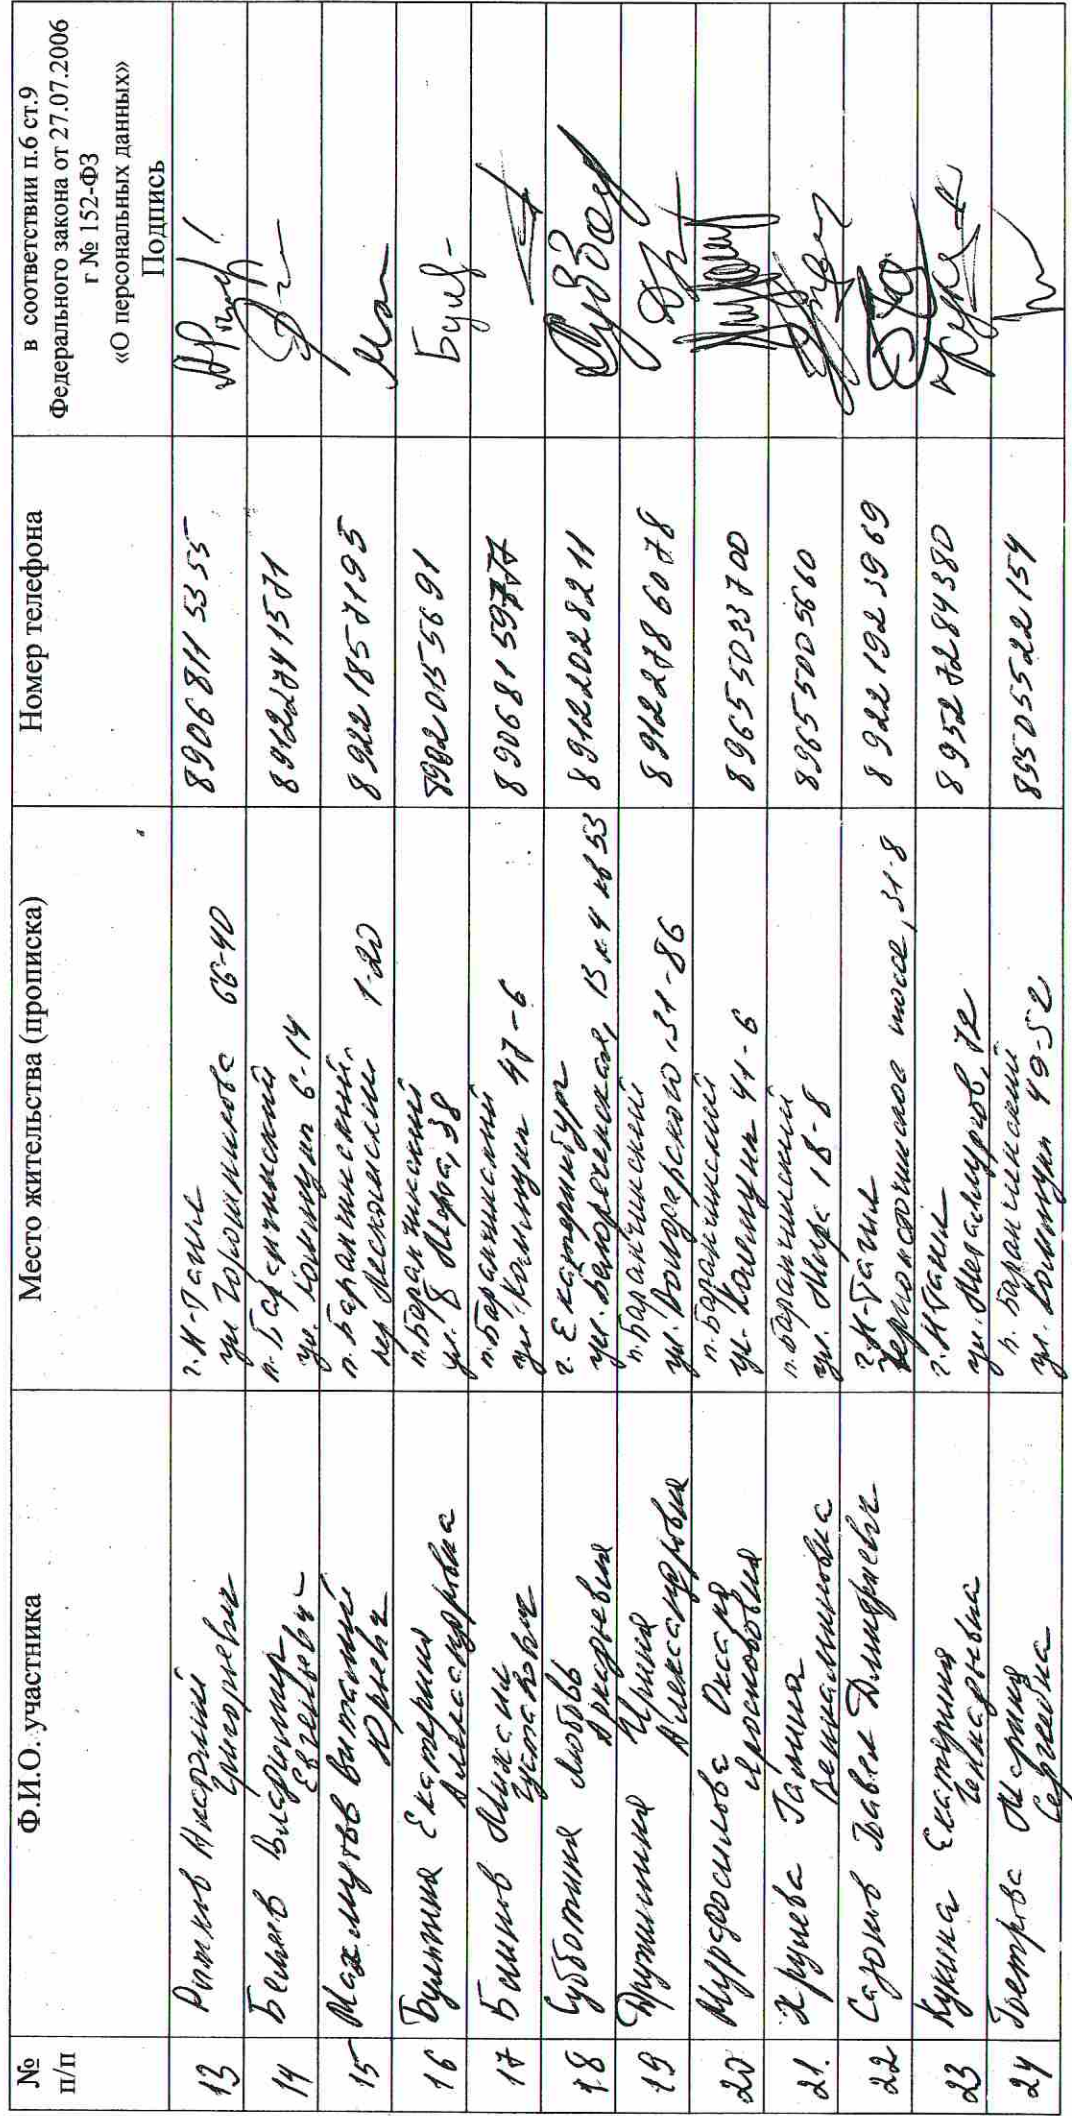 № п/п
Ф.И.О. участника
Место жительства (прописка)
Номер телефона
в соответствии п.6 ст.9
Федерального закона от 27.07.2006
г № 152-ФЗ
«О персональных данных»
Подпись
13
Григорьевич
г. Н-Тагил
66-40
89068115355
14
Беляев Владимир
Евгеньевич
п. Баранчинский
ул. Коммуны 6-14
89122741571
15
Махмутов Виталий
Юрьевич
п. Баранчинский
1-20
89221857195
16
Екатерина
Александровна
п. Баранчинский
ул. 8 Марта, 38
89920155691
17
п. Баранчинский
ул. Коммуны 47-6
89068159777
18
Субботина Любовь
Аркадьевна
г. Екатеринбург
ул. Белореченская, 13 к.4 кв 53
89122028211
19
Дружинина Ирина
Александровна
п. Баранчинский
ул. Володарского 131-86
89122786078
20
Оксана
п. Баранчинский
ул. Коммуны 41-6
89655033700
21.
Хрулева Галина
Вениаминовна
п. Баранчинский
ул. Мира 18-8
89655005660
22
Сазонов Павел Дмитриевич
г. Н-Тагил
Черноисточинское шоссе, 31-8
89221923969
23
Екатерина
Геннадьевна
г. Н Тагил
ул. Металлургов, 72
89527284380
24
Марина
Сергеевна
п. Баранчинский
ул. Коммуны 49-52
89505522154